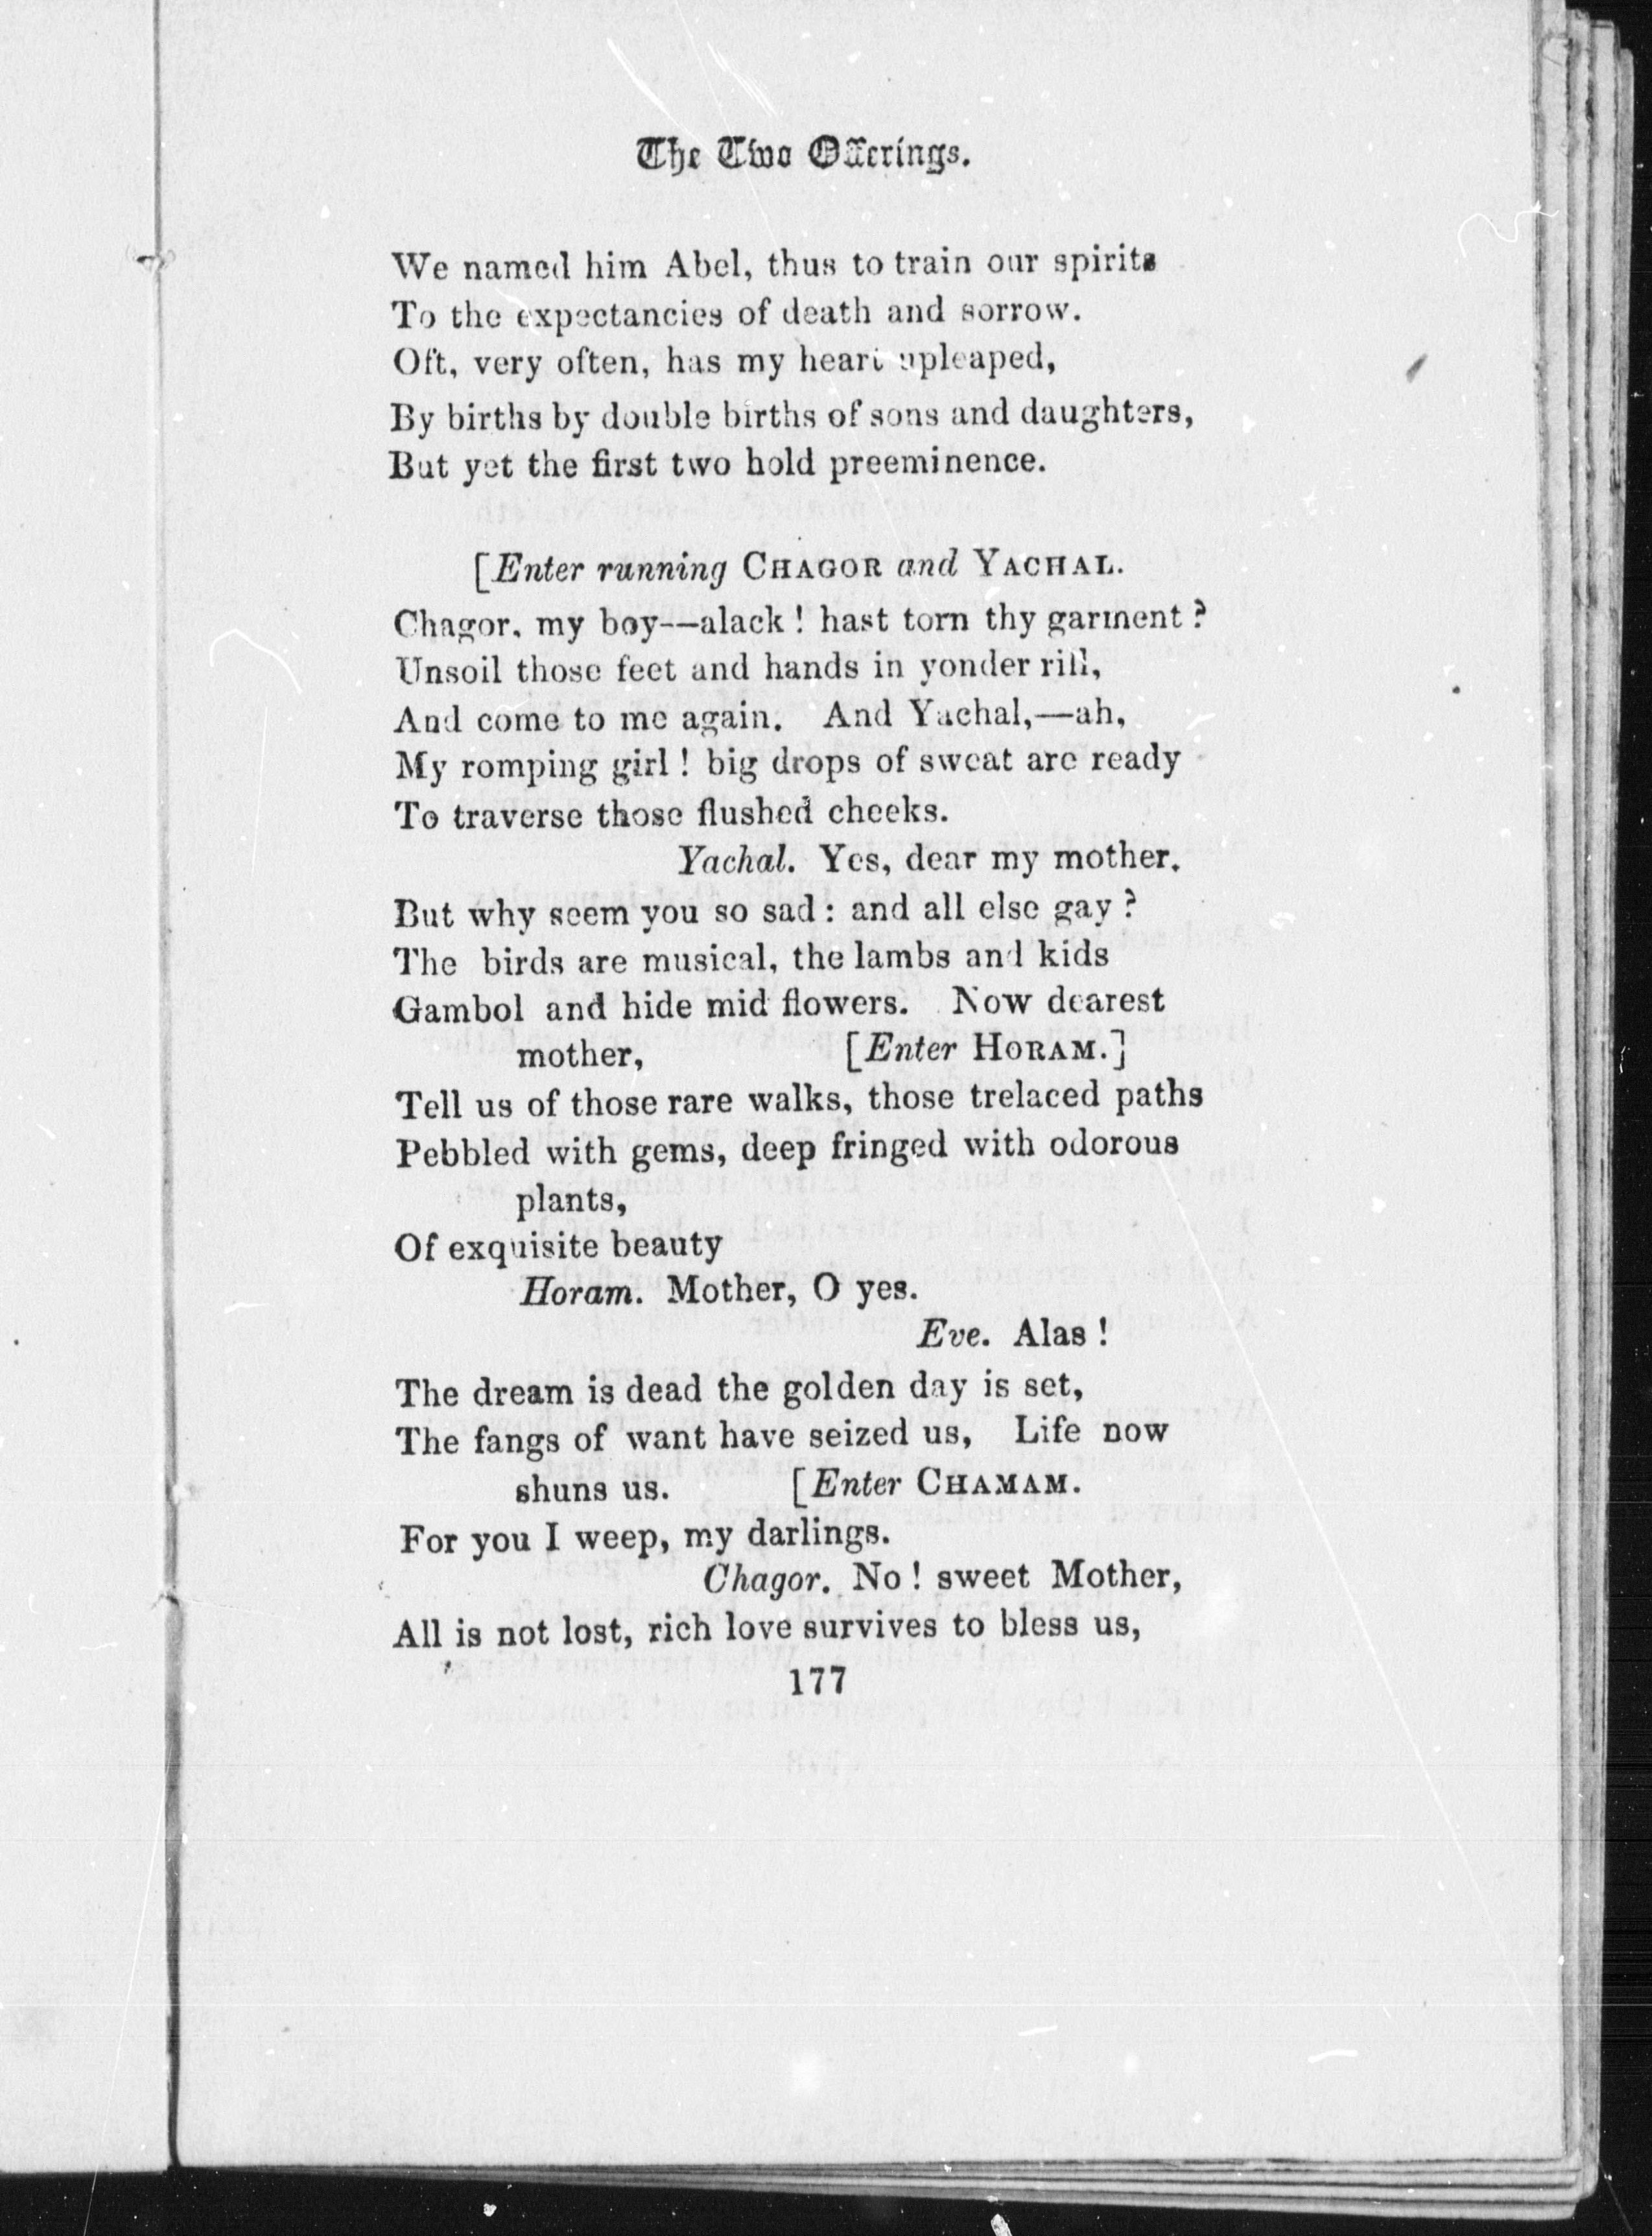 The Two Offerings.
We named him Abel, thus to train our spirits
To the expectancies of death and sorrow.
Oft, very often, has my heart upleaped,
By births by double births of sons and daughters,
But yet the first two hold preeminence.
[Enter running CHAGOR and YACHAL.
Chagor, my boy--alack! hast torn thy garment?
Unsoil those feet and hands in yonder rill,
And come to me again. And Yachal,—ah,
My romping girl! big drops of sweat are ready
To traverse those flushed cheeks.
Yachal. Yes, dear my mother.
But why seem you so sad: and all else gay?
The birds are musical, the lambs and kids
Gambol and hide mid flowers. Now dearest
mother, [Enter HORAM.]
Tell us of those rare walks, those trelaced paths
Pebbled with gems, deep fringed with odorous
plants,
Of exquisite beauty
Horam. Mother, O yes.
Eve. Alas!
The dream is dead the golden day is set,
The fangs of want have seized us, Life now
shuns us. [Enter CHAMAM.
For you I weep, my darlings.
Chagor. No! sweet Mother,
All is not lost, rich love survives to bless us,
177